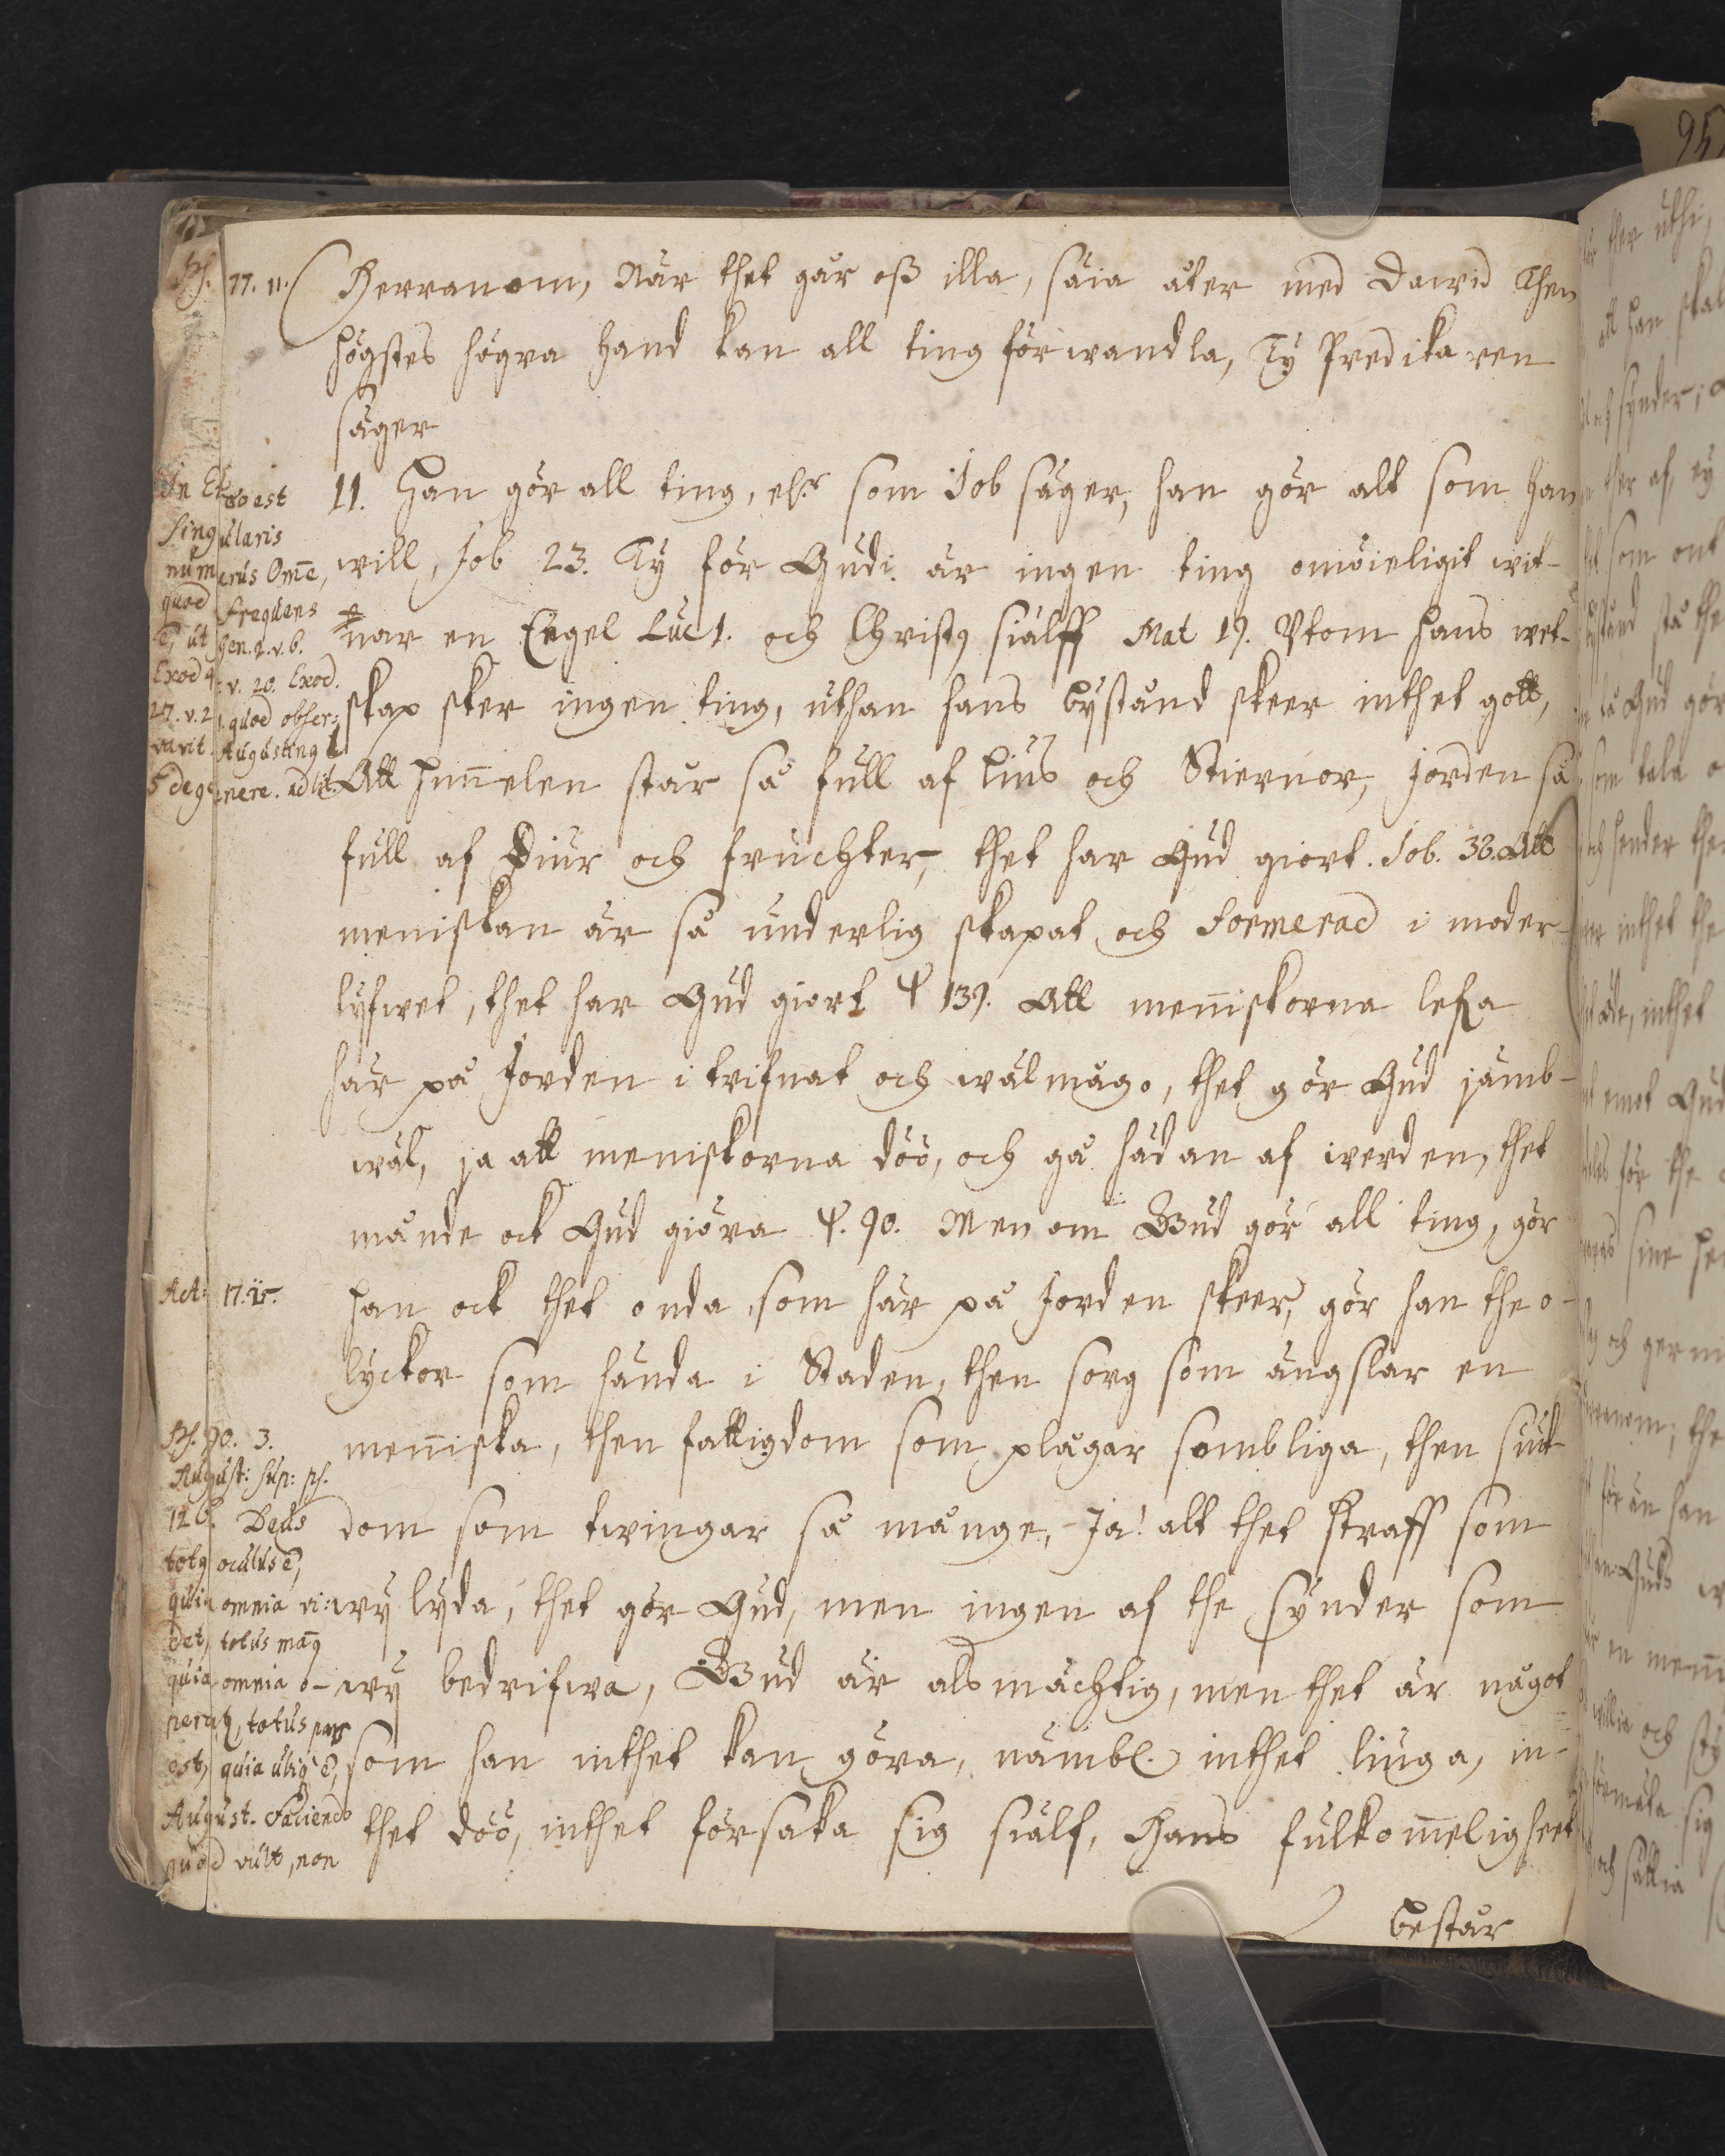 Ps. 77. 11.
Herranom, När thet går oß illa, säia åter med David Then
högstes högra hand kan all ting förwandla, Ty Predikaren
säger
11. Han gör all ting, elr som Job säger, han gör alt som han
will, Job 23. Ty för Gudi är ingen ting omöieligit wit-
nar en Engel Luc 1. och Christus siälff Mat 19. Utom hans wet-
skap sker ingen ting, uthan hans bystånd skeer inthet gott,
Att himelen står så full af lius och Stiernor, jorden så
full af Diur och fruchter, thet har Gud giort. Job. 38. Att
meniskan är så underlig skapat och formerad i moder-
lyfwet, thet har Gud giort Ψ 139. Att meniskorna lefa
här på Jorden i trifnat och wälmågo, thet gör Gud jämb-
wäl, ja att meniskorna döö, och gå hädan af werden, thet
månde ock Gud giöra Ψ. 90. Men om Gud gör all ting, gör
han ock thet onda som här på Jorden skeer, gör han the o-
lyckor som hända i Staden, then sorg som ängslar en
meniska, then fattigdom som plågar sombliga, then siuk
dom som twingar så månge, Ja! alt thet straff som
wy lyda, thet gör Gud, men ingen af the synder som
wy bedrifwa, Gud är alsmächtig, men thet är något
som han inthet kan göra, nämbl. inthet liuga, in-
thet döö, inthet försaka sig siälf, Hans fulkomeligheet
består
In Eo est
singularis
numerus Ome,
quod frequens
e, ut Gen. 2. v. 6.
Exod 4: v. 20. Exod.
27. v. 21. quod obser:
vavit Augustinus l
5 de genere. ad lit.
Act: 17. 25.
Ps. 90. 3.
August: sup: ps.
126. Deus
totus oculus e,
quia omnia vi:
det, totus manus
quia omnia o-
peratur, totus pes
est, quia ubique e,
August. Faciendo
quod vult, non
95